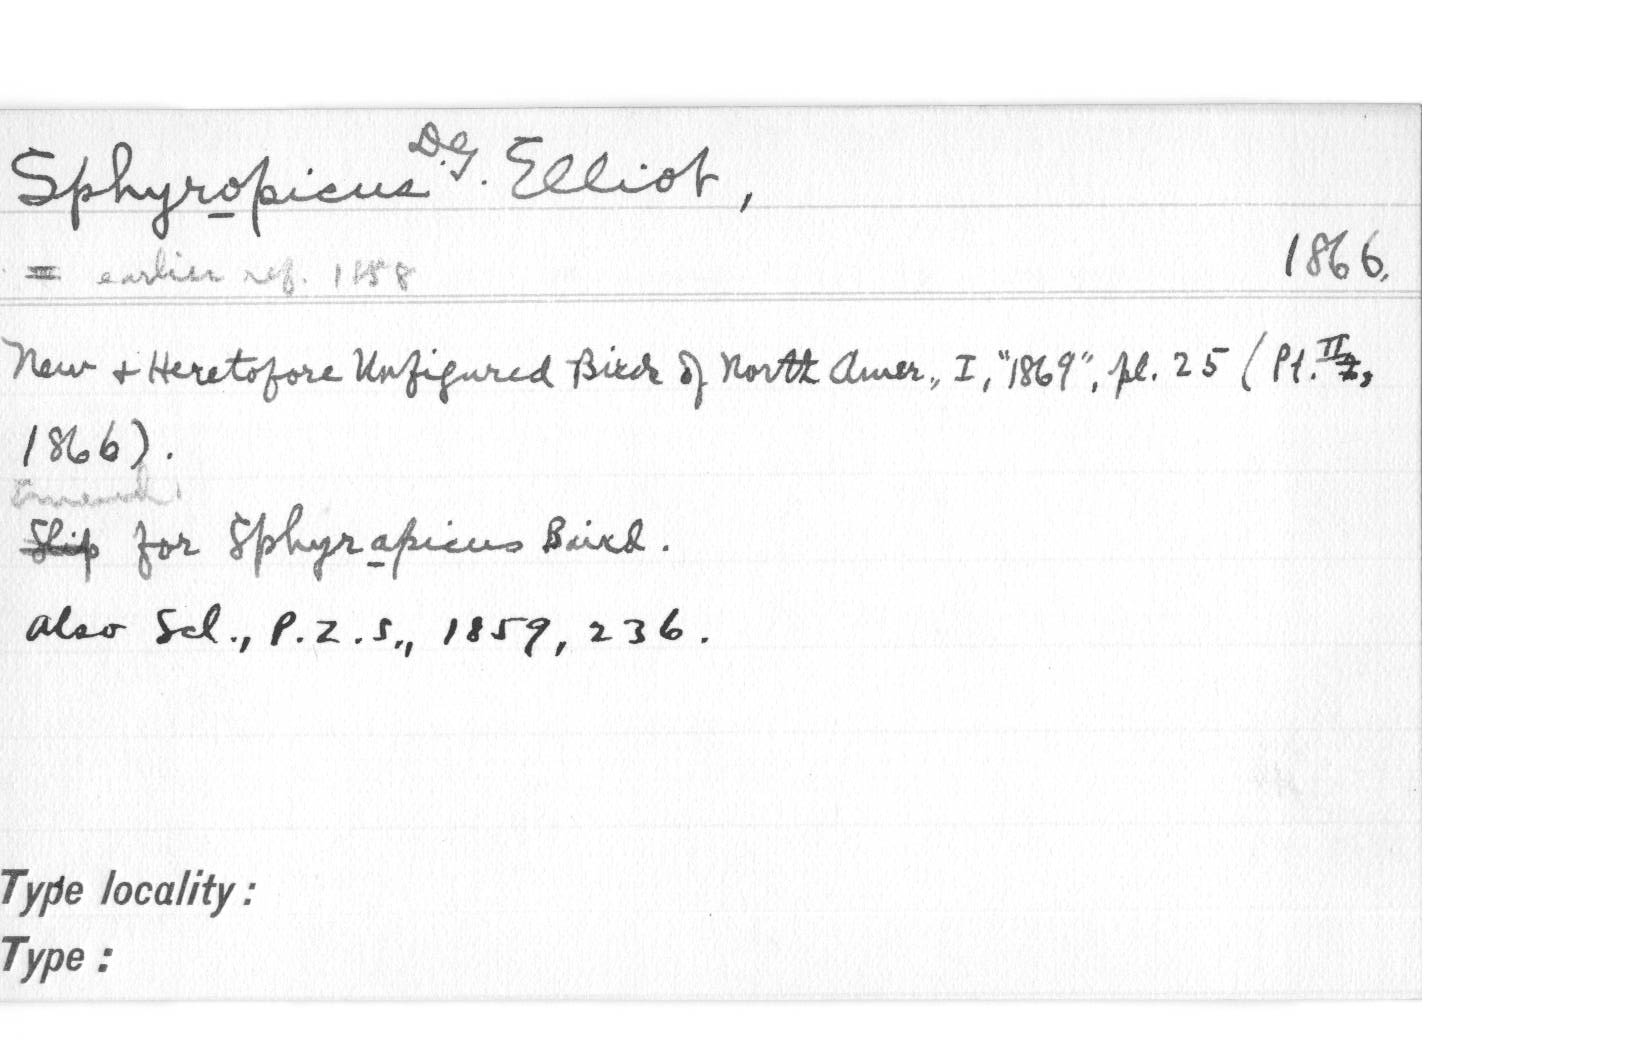 Sphyropicus D.G. Elliot,
= earlier ref. 1858
1866.
New & Heretofore Unfigured Birds of North Amer., I, "1869", pl. 25 (Pt. II,
1866).
Emend.
Slip for Sphyrapicus Baird.
also Scl., P.Z.S., 1859, 236.
Type locality:
Type: